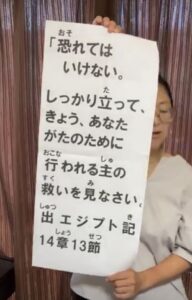 「恐れては
いけない。
しっかり立って、
きょう、あなた
がたのために
行われる主の
救いを見なさい。
出エジプト記
14章13節